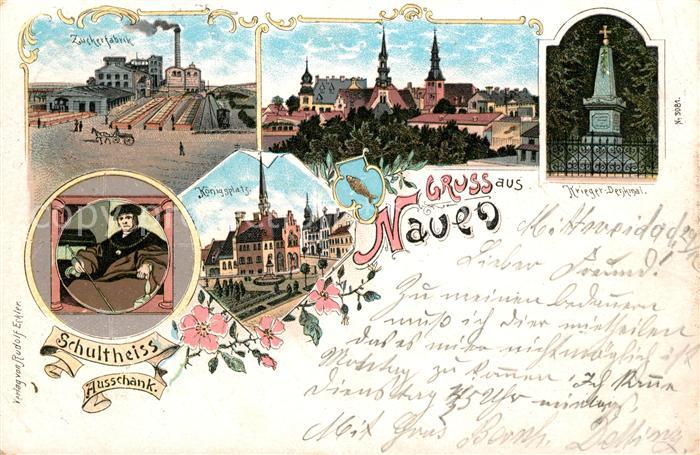 Zuckerfabrik
Königsplatz.
Krieger-Denkmal.
K. 3081.
GRUSS aus
Nauen
Schultheiss
Ausschank.
Verlag von Rudolf Exner
Lieber Freund!
Zu meinen bedauern
muß ich dier mietheilen
das es nicht möglich ist
Montag zu kommen. Ich
Dienstag Uhr
Mit Gruß